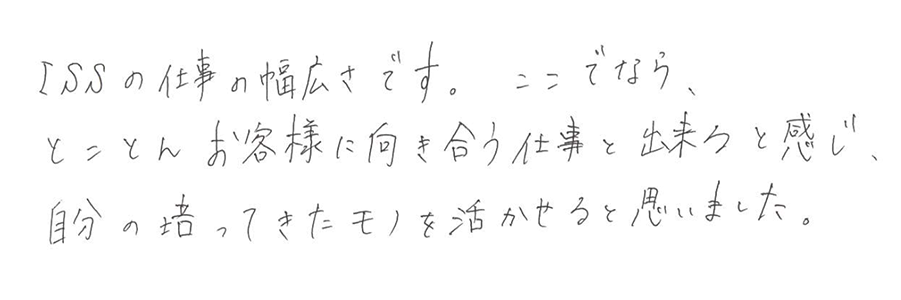 ISSの仕事の幅広さです。ここでなら、
とことんお客様に向き合う仕事と出来ると感じ、
自分の培ってきたモノを活かせると思いました。